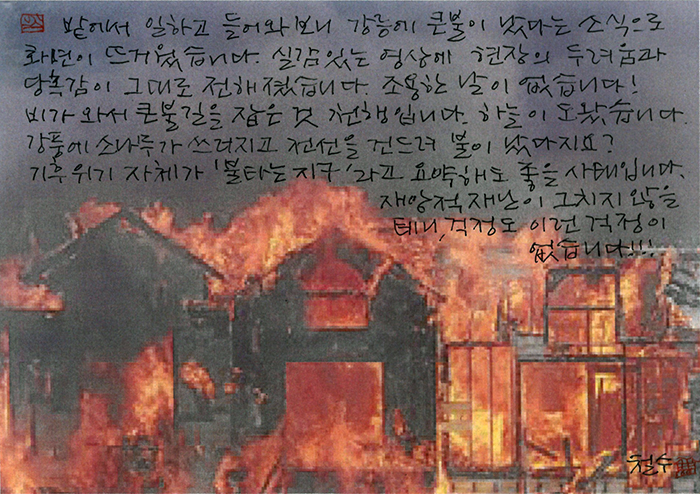 밭에서 일하고 들어와보니 강릉에 큰불이 났다는 소식으로
화면이 뜨거웠습니다. 실감있는 영상에 현장의 두려움과
당혹감이 그대로 전해졌습니다. 조용한 날이 없습니다!
비가 와서 큰불길을 잡은 것 천행입니다. 하늘이 도왔습니다.
강풍에 소나무가 쓰러지고 전선을 건드려 불이 났다지요?
기후위기 자체가 '불타는 지구'라고 요약해도 좋을 사태입니다.
재앙적 재난이 그치지 않을
테니, 걱정도 이런 걱정이
없습니다!!!
철수